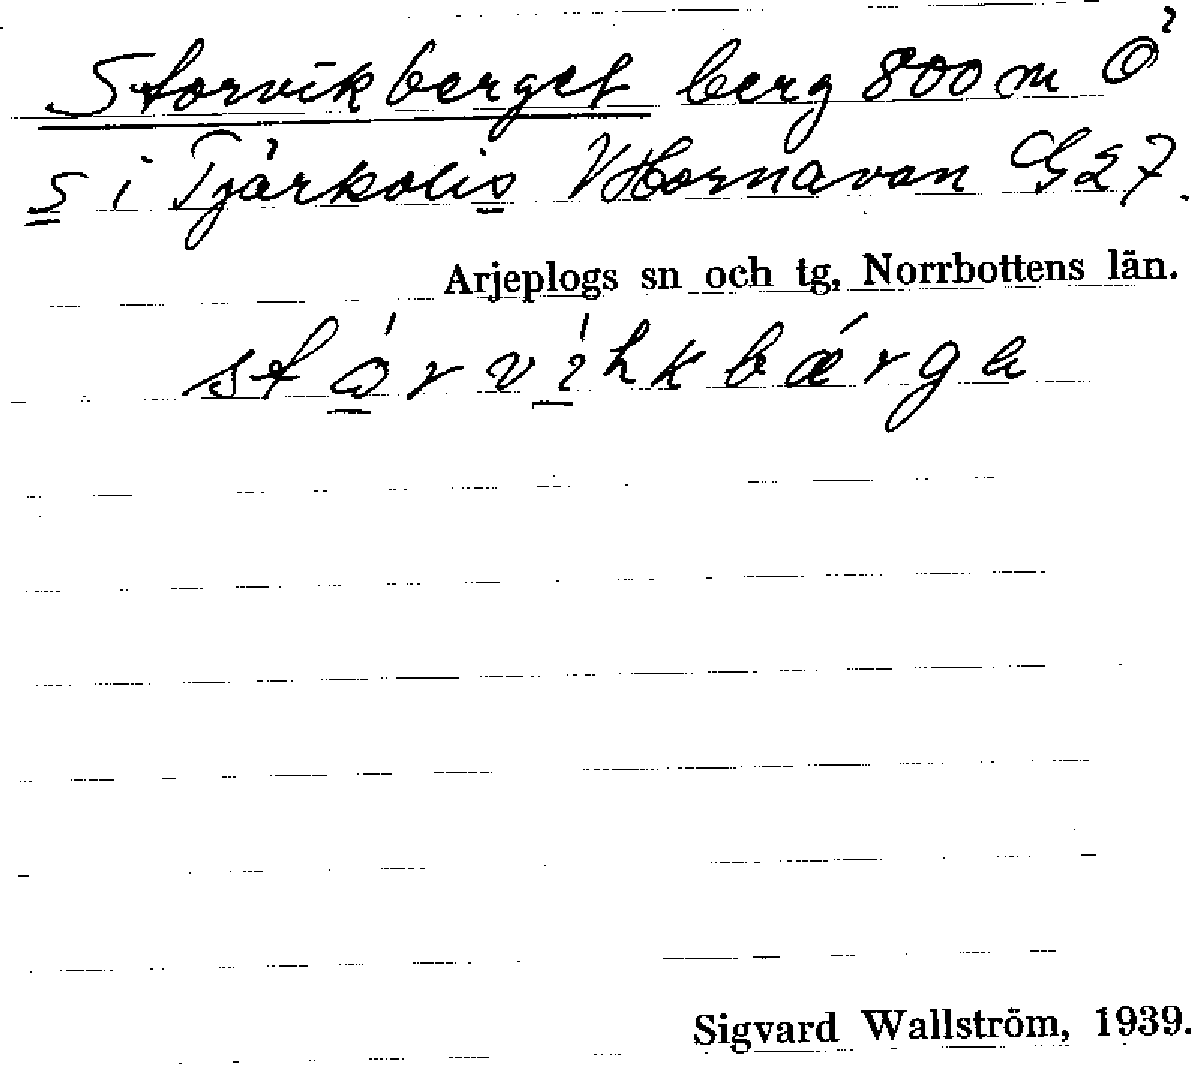 Storvikberget berg 800 m Ö
S i Tjårkolis V Hornavan G27.
Arjeplogs sn och tg, Norrbottens län.
stǻrvíhkbǽrga
Sigvard Wallström, 1939.